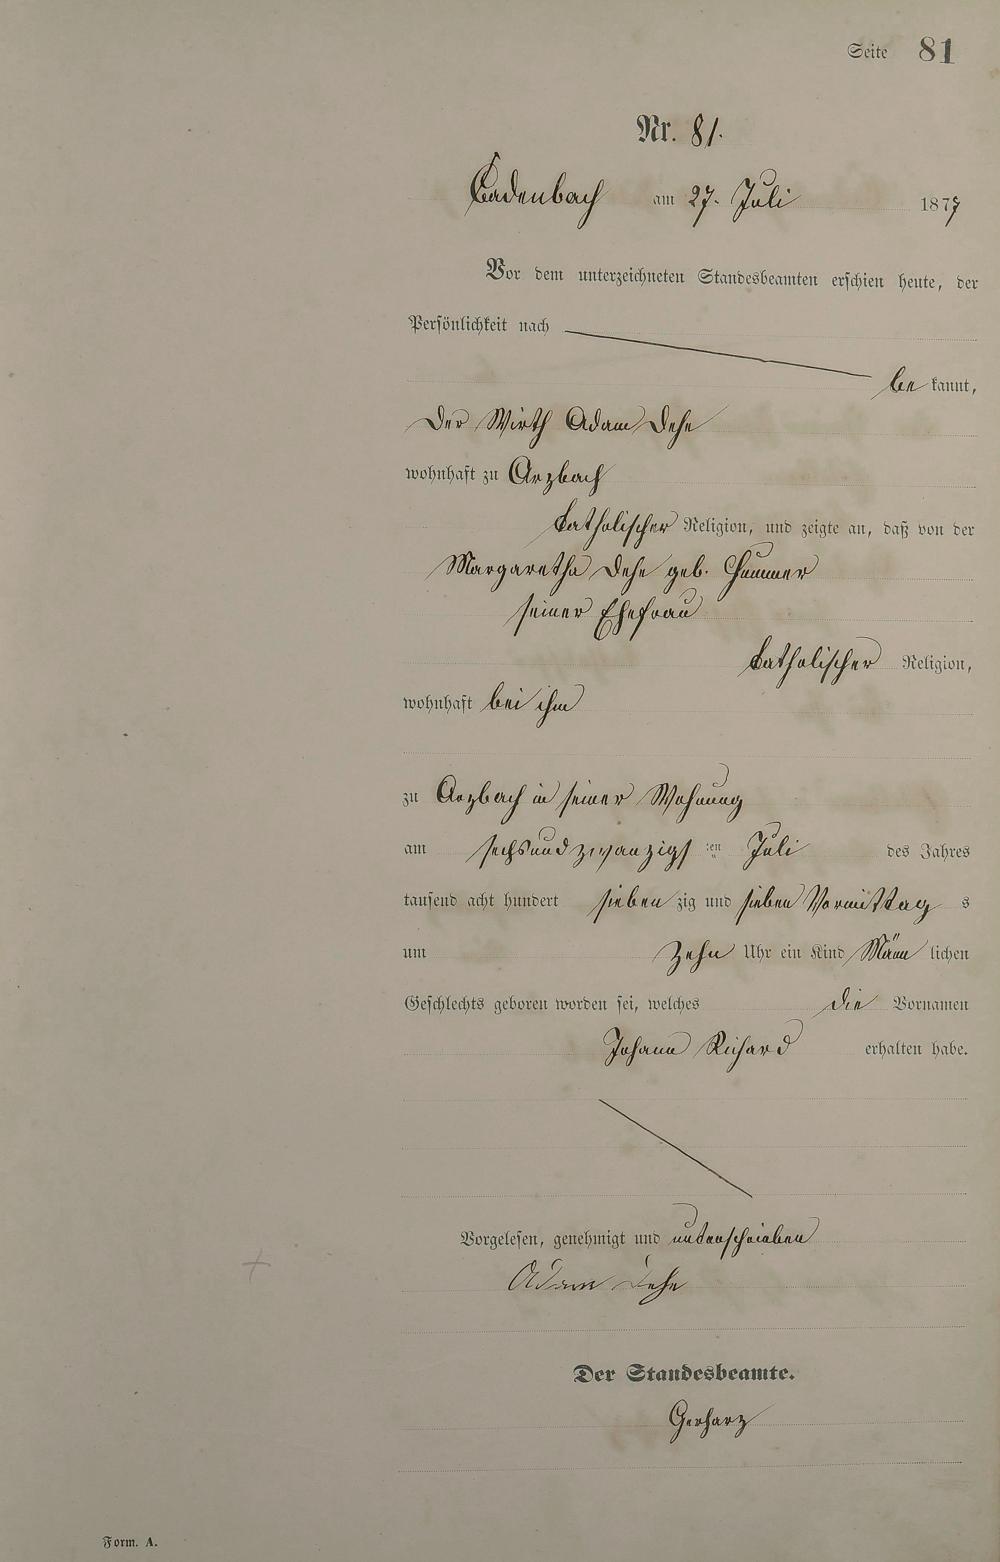 Seite 81
Nr. 81.
Cadenbach am 27. Juli 1877
Vor dem unterzeichneten Standesbeamten erschien heute, der
Persönlichkeit nach
be kannt,
Der Wirth Adam Dehe
wohnhaft zu Arzbach
katholischer Religion, und zeigte an, daß von der
Margaretha Dehe geb.
seiner Ehefrau
katholischer Religion,
wohnhaft bei ihm
zu Arzbach in seiner Wohnung
am sechsundzwanzigs ten Juli des Jahres
tausend acht hundert sieben zig und sieben Vormittag s
um Zehn Uhr ein Kind Männ lichen
Geschlechts geboren worden sei, welches die Vornamen
Johann Richard erhalten habe.
Vorgelesen, genehmigt und unterschrieben
Adam Dehe
Der Standesbeamte.
Gerharz
Form. A.